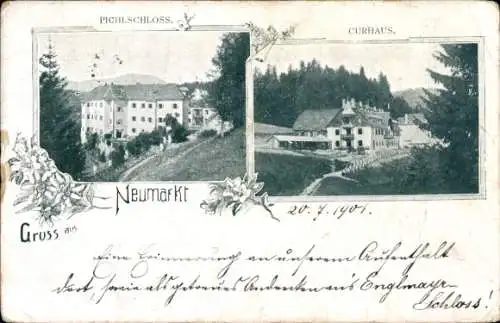 PICHLSCHLOSS.
CURHAUS.
Neumarkt
Gruss aus
20. 7. 1901.
Eine Erinnerung an unserem Aufenthalt
dort, sowie als getreues Andenken an's Englmayr-
Schloss!